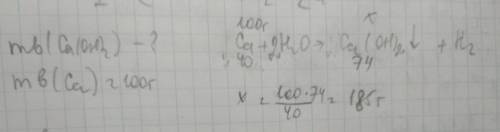 mв(Ca(OH)₂) - ?
mв(Ca) = 100г
100г x
Ca + 2H₂O → Ca(OH)₂ ↓ + H₂
40 74
x = 100·74/40 = 185г